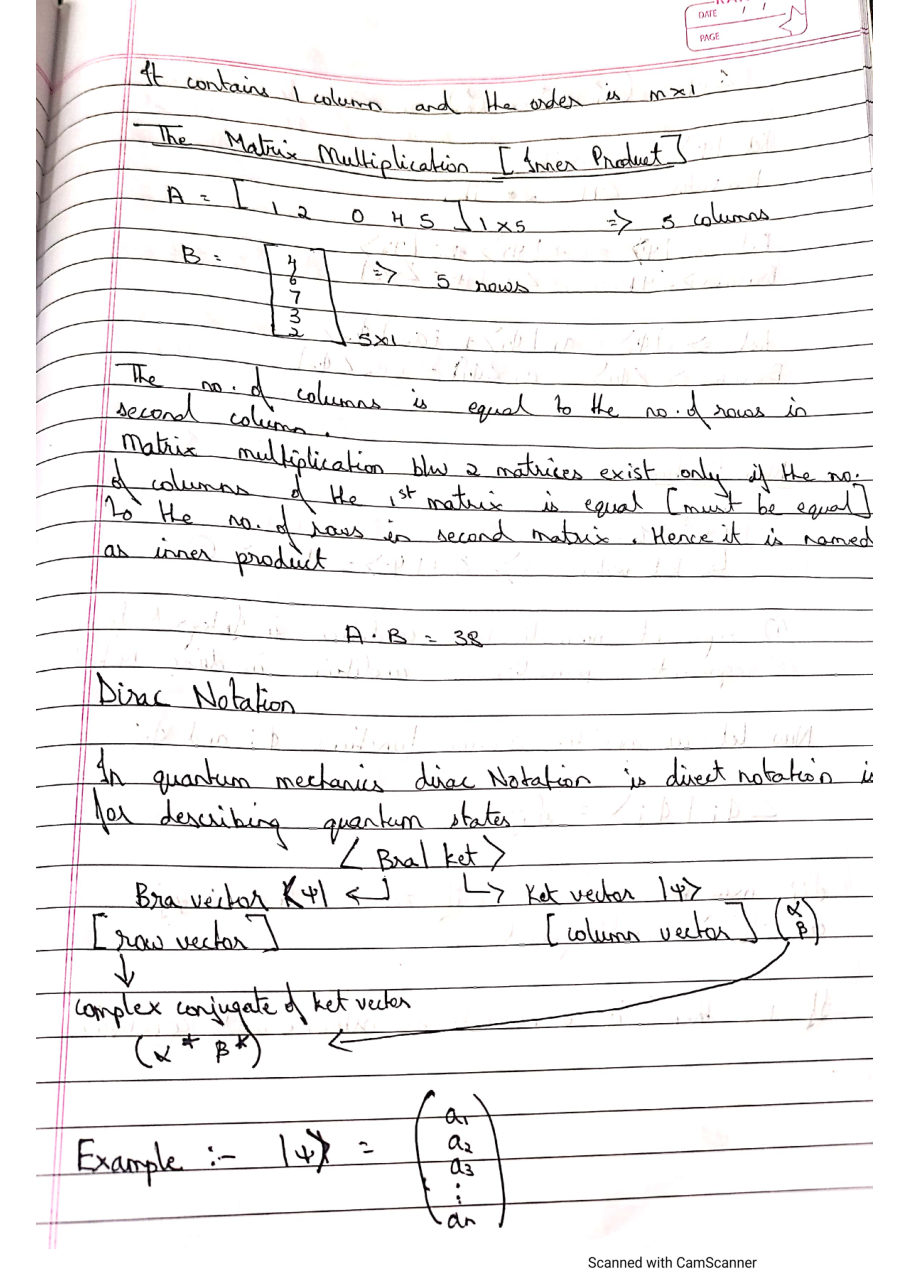 DATE / /
PAGE
It contains 1 column and the order is m×1 :
The Matrix Multiplication [Inner Product]
A = [ 1 2 0 4 5 ] 1×5 => 5 columns
B = [ 4 6 7 3 2 ] 5×1 => 5 rows
The no. of columns is equal to the no. of rows in
second column.
Matrix multiplication b/w 2 matrices exist only if the no.
of columns of the 1st matrix is equal [must be equal]
to the no. of rows in second matrix. Hence it is named
as inner product
A . B = 38
Dirac Notation
In quantum mechanics dirac Notation is direct notation is
for describing quantum states
< Bra | ket >
Bra vector <ψ| ↲ ↳ Ket vector |ψ>
[row vector] [column vector] (α β)
↓
complex conjugate of ket vector
(α* β*) ←
Example :- |ψ> = (a1 a2 a3 ⋮ an)
Scanned with CamScanner